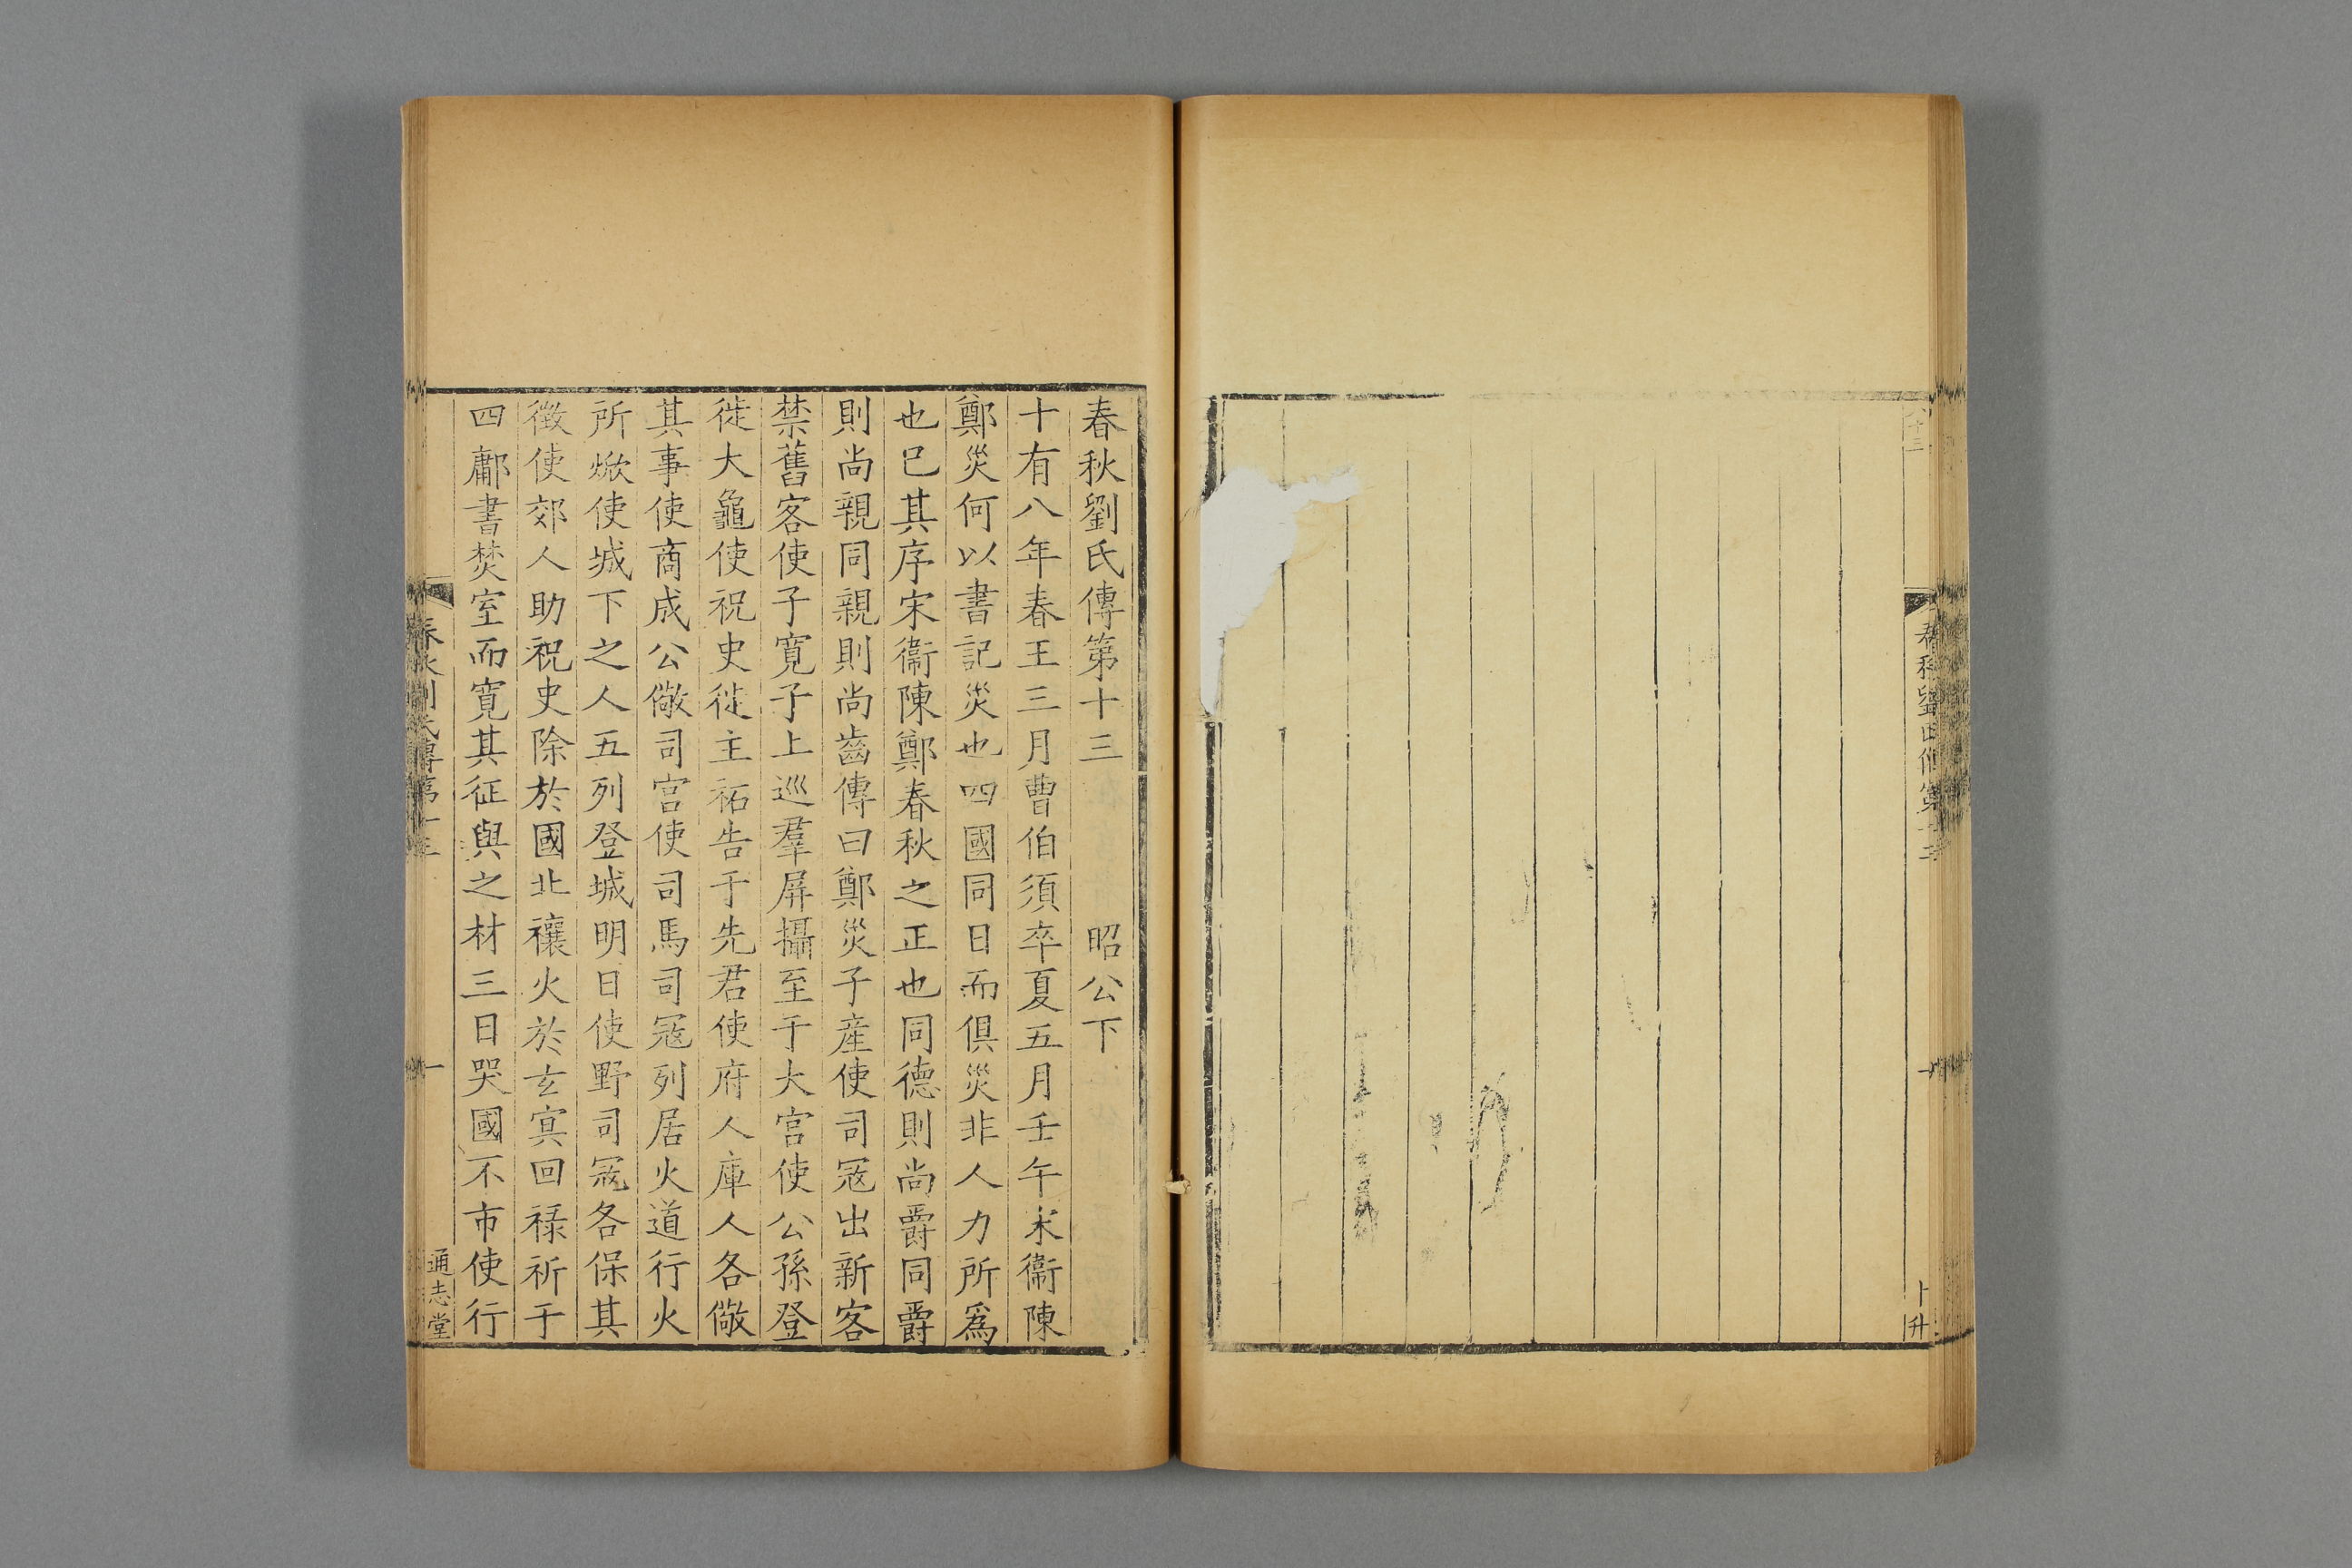 春秋劉氏傳第十三　昭公下
十有八年春王三月曹伯須卒夏五月壬午宋衞陳
鄭災何以書記災也四國同日而俱災非人力所爲
也已其序宋衞陳鄭春秋之正也同德則尚爵同爵
則尚親同親則尚齒傳曰鄭災子產使司寇出新客
禁舊客使子寬子上巡羣屏攝至于大宮使公孫登
徙大龜使祝史徙主祏告于先君使府人庫人各儆
其事使商成公儆司宮使司馬司寇列居火道行火
所焮使城下之人五列登城明日使野司寇各保其
徵使郊人助祝史除於國北禳火於玄冥回祿祈于
四鄘書焚室而寬其征與之材三日哭國不市使行
春秋劉氏傳第十三
一
通志堂